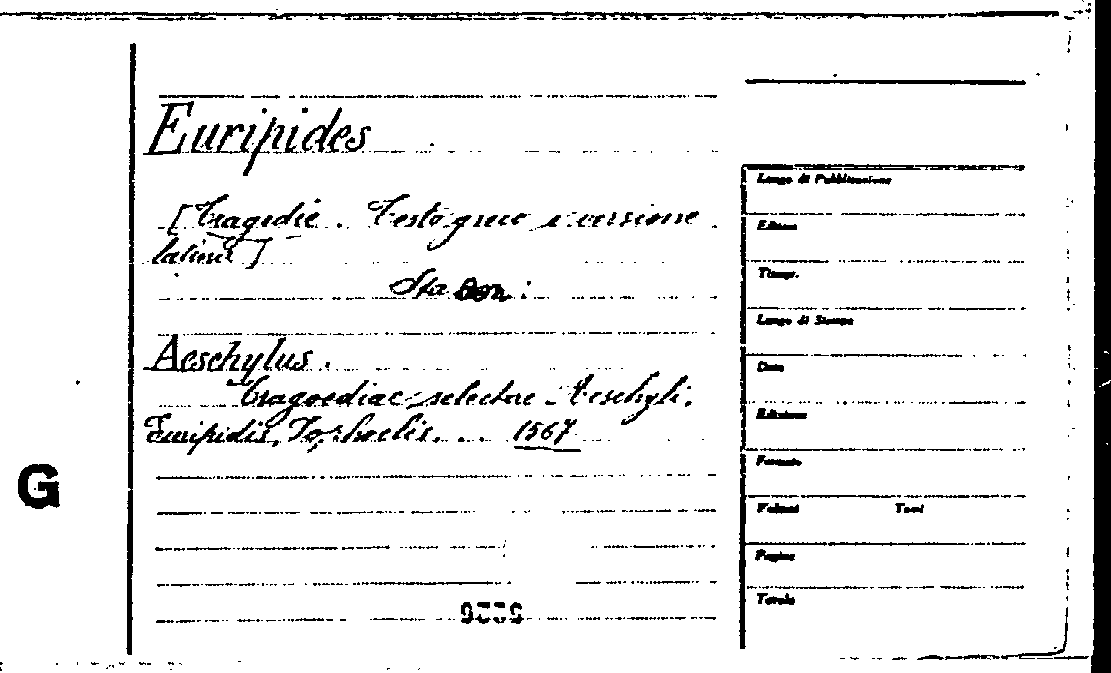 Euripides
[Tragedie. Testo greco e versione
latina]
Sta con:
Aeschylus.
Tragoediae selectae Aeschyli,
Euripidis, Sophoclis... 1567
G
Luogo di Pubblicazione
Editore
Tipogr.
Luogo di Stampa
Data
Edizione
Formato
Volumi Tomi
Pagine
Tavole